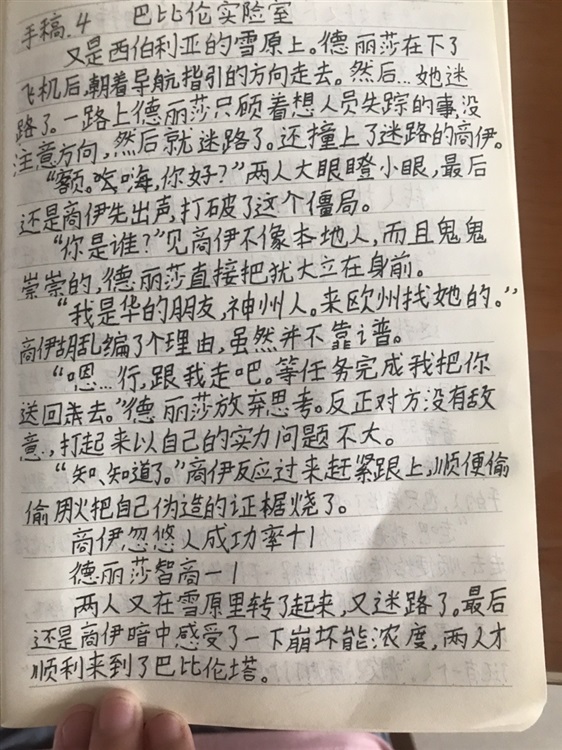 手稿.4 巴比伦实验室
又是西伯利亚的雪原上。德丽莎在下了
飞机后,朝着导航指引的方向走去。然后…她迷
路了。一路上德丽莎只顾着想人员失踪的事,没
注意方向,然后就迷路了。还撞上了迷路的高伊。
“额。嗨,你好?”两人大眼瞪小眼,最后
还是高伊先出声,打破了这个僵局。
“你是谁?”见高伊不像本地人,而且鬼鬼
祟祟的,德丽莎直接把犹大立在身前。
“我是华的朋友,神州人。来欧州找她的。”
高伊胡乱编了个理由,虽然并不靠谱。
“嗯…行,跟我走吧。等任务完成我把你
送回去。”德丽莎放弃思考。反正对方没有敌
意,打起来以自己的实力问题不大。
“知、知道了。”高伊反应过来赶紧跟上,顺便偷
偷用火把自己伪造的证据烧了。
高伊忽悠人成功率+1
德丽莎智商-1
两人又在雪原里转了起来,又迷路了。最后
还是高伊暗中感受了一下崩坏能浓度,两人才
顺利来到了巴比伦塔。